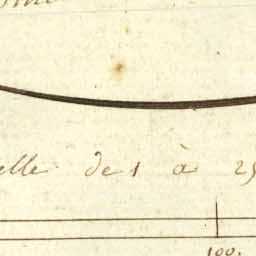 elle de 1 à 25
100.